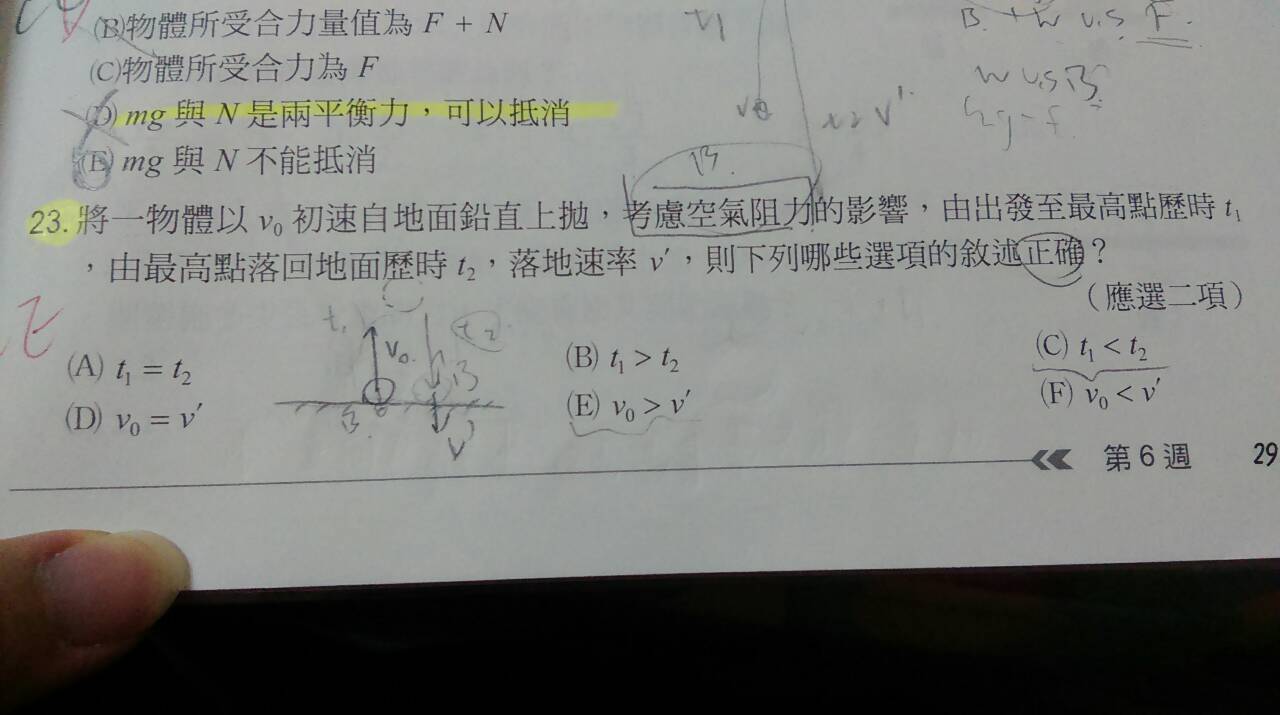 (B)物體所受合力量值為 F + N
(C)物體所受合力為 F
(D) mg 與 N 是兩平衡力，可以抵消
(E) mg 與 N 不能抵消
23. 將一物體以 v₀ 初速自地面鉛直上拋，考慮空氣阻力的影響，由出發至最高點歷時 t₁
，由最高點落回地面歷時 t₂，落地速率 v′，則下列哪些選項的敘述正確？
（應選二項）
(A) t₁ = t₂ (B) t₁ > t₂ (C) t₁ < t₂
(D) v₀ = v′ (E) v₀ > v′ (F) v₀ < v′
第 6 週 29
t₁
t₂ v'
B.
t₁
v₀
t₂
B
v'